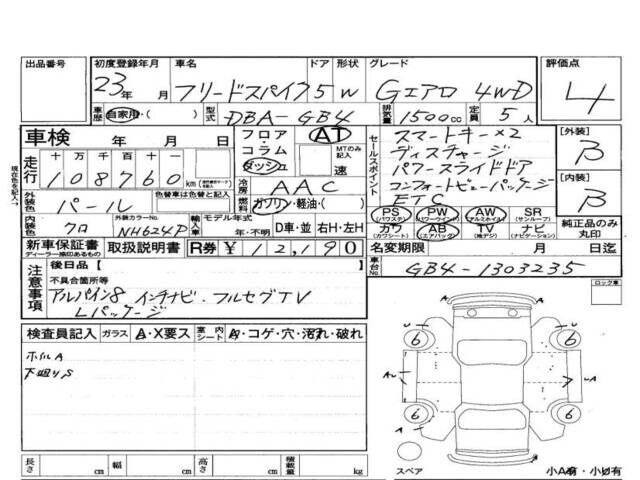 出品番号 初度登録年月 車名 ドア 形状 グレード 評価点
23年 月 フリードスパイク 5 W Gエアロ 4WD 4
車歴 自家用・( ) 型式 DBA-GB4 排気量 1500cc 定員 5人
車検 年 月 日 フロア・コラム・ダッシュ AT MTのみ記入 速
走行 十万 万 千 百 十 一 108760 km
セールスポイント
スマートキー×2
ディスチャージ
パワースライドドア
コンフォートビューパッケージ
ETC
[外装] B
[内装] B
現在色を記入→
外装色 パール 色替車は色替と記入 冷房 AAC
燃料 ガソリン・軽油・( )
内装色 クロ 外装カラーNo. NH624P 輸入車 モデル年式 年・不明 D車・並 右H・左H
PS (パワステ) PW (パワーウィンド) AW (アルミホイル) SR (サンルーフ)
カワ (カワシート) AB (エアバッグ) TV (地デジ) ナビ (ナビゲーション)
純正品のみ丸印
新車保証書 ディーラー捺印あるもの 取扱説明書 R券 ¥12,190 名変期限 月 日迄
車台No. GB4-1303235
注意事項 後日品[ ]
不具合箇所等
アルパイン8インチナビ・フルセグTV
Lパッケージ
ロック車
検査員記入 ガラス A・X要ス 室内シート A・コゲ・穴・汚れ・破れ
ホイルA
下廻りS
6 6
A A
6 6
長さ cm 幅 cm 高さ cm 積載量 kg
スペア 小A有・小U有